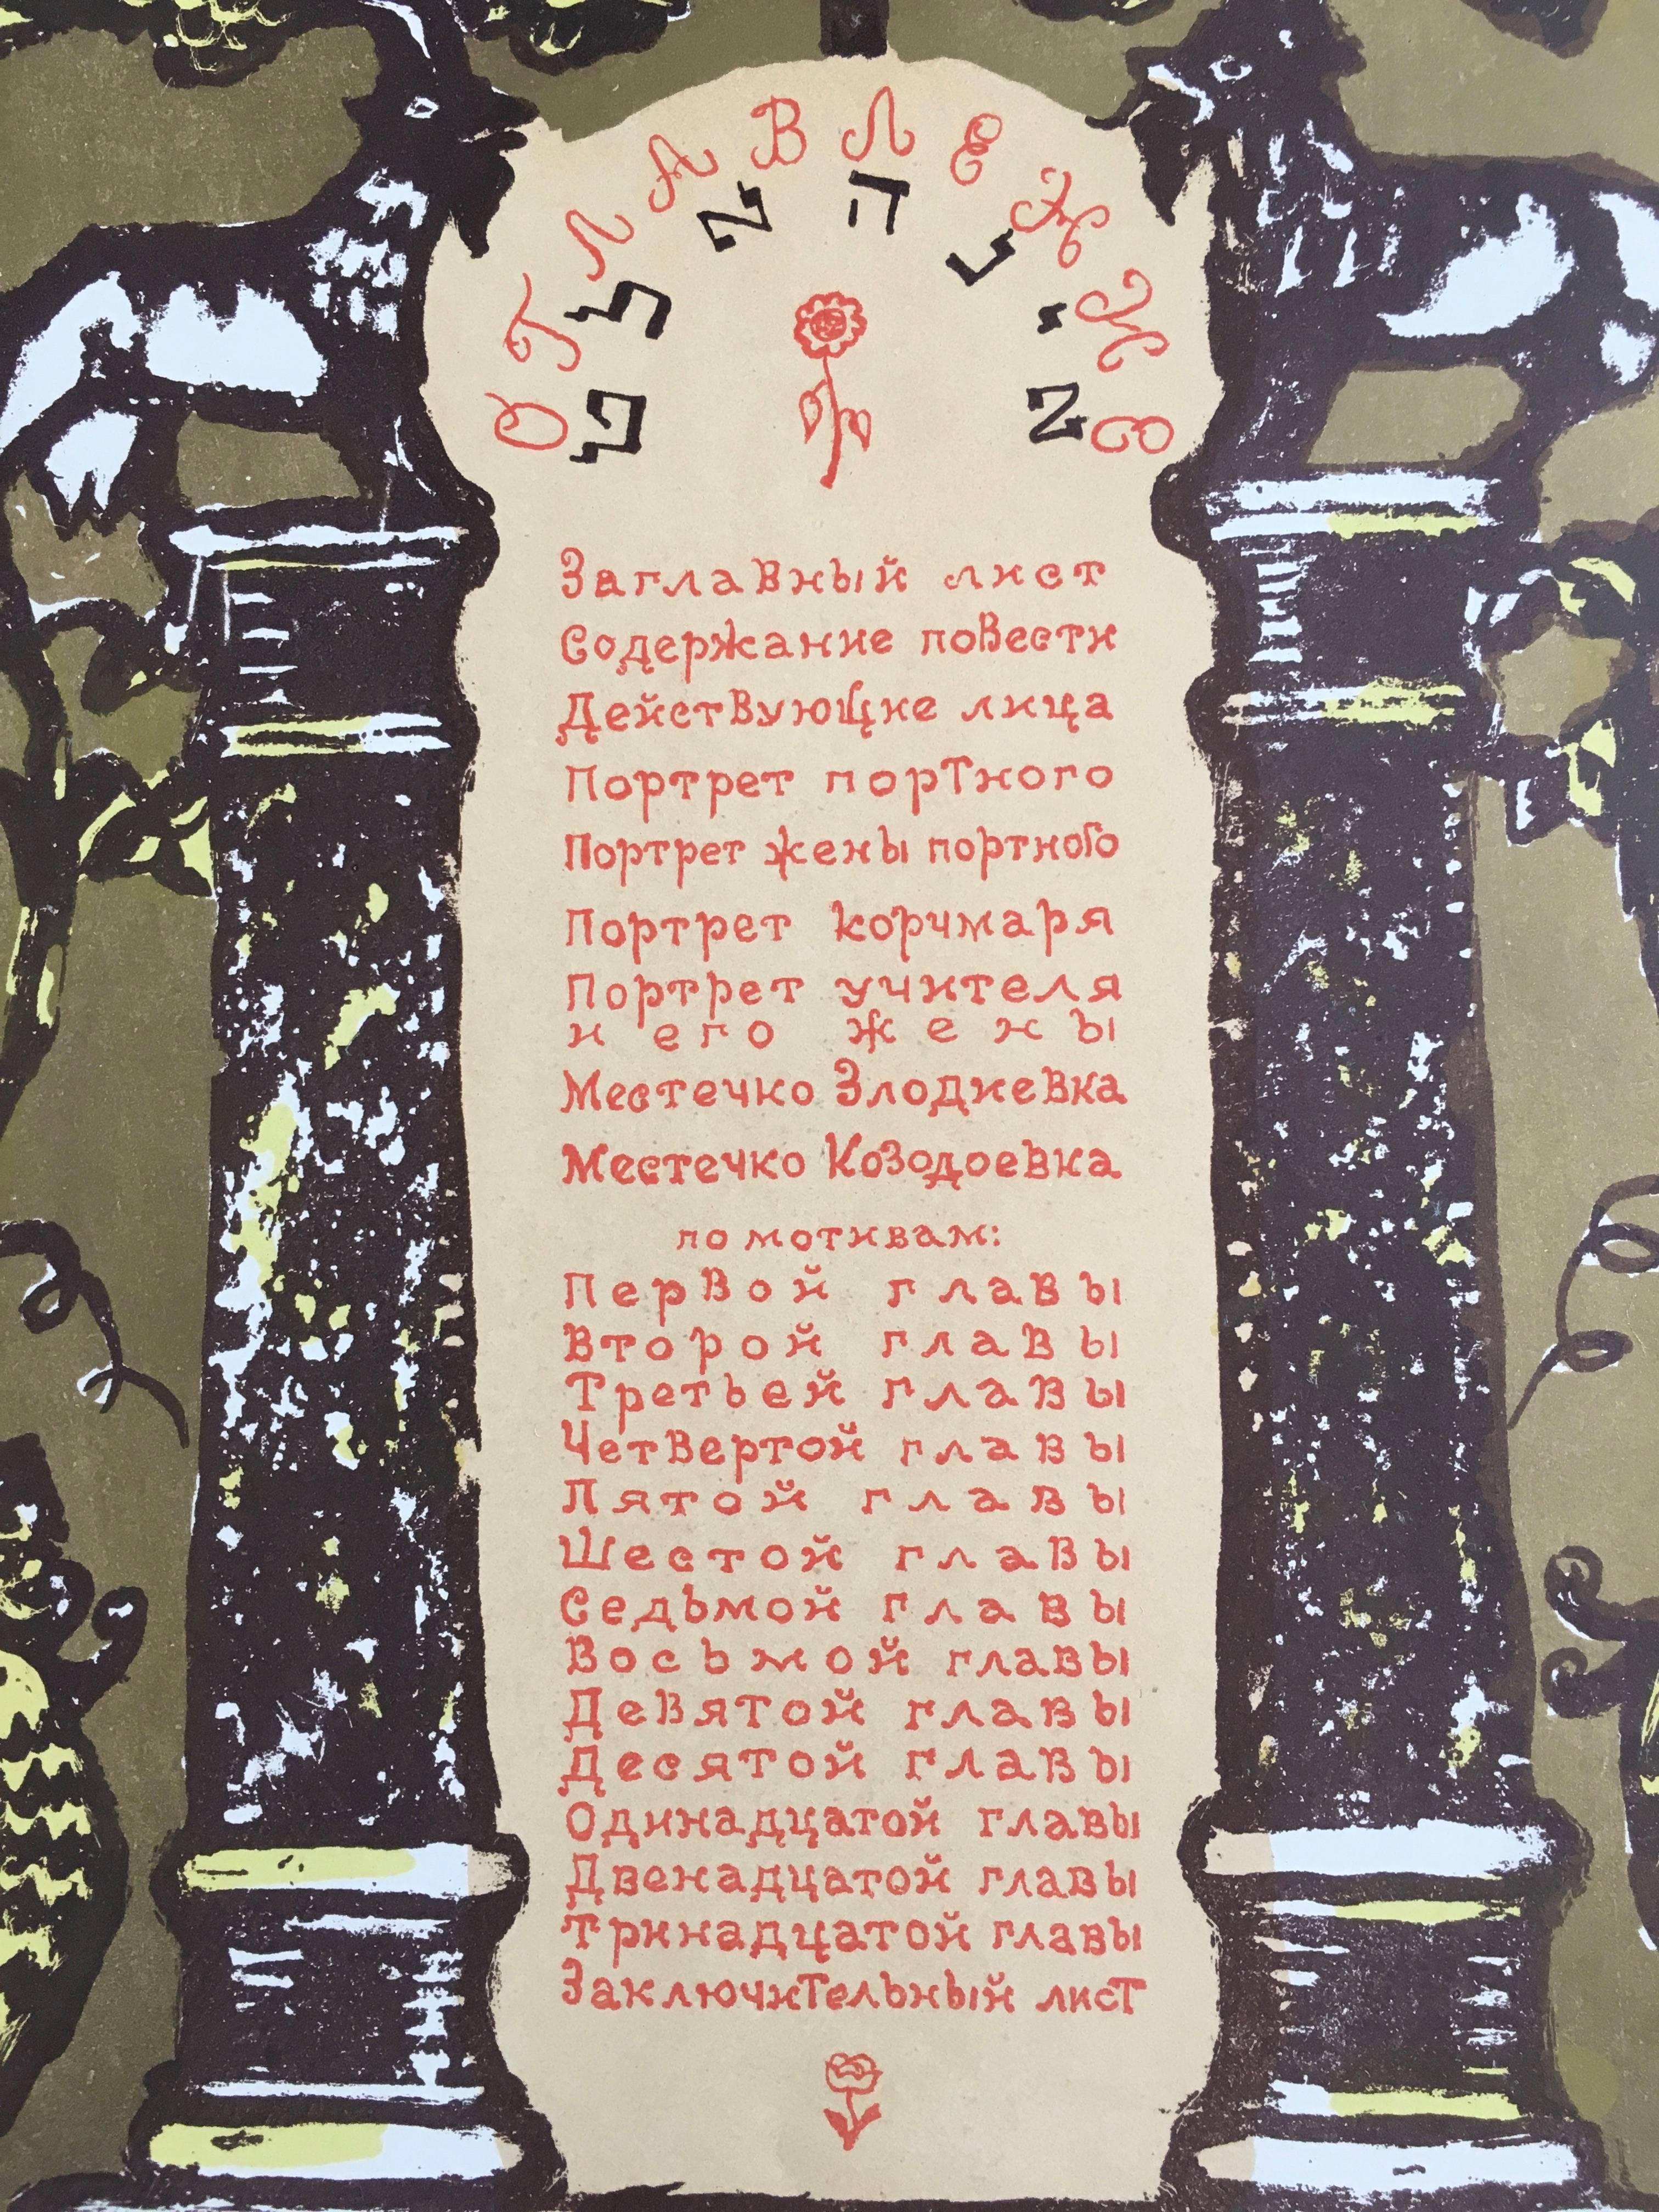 ОГЛАВЛЕНИЕ
אינהאלט
Заглавный лист
Содержание повести
Действующие лица
Портрет портного
Портрет жены портного
Портрет корчмаря
Портрет учителя
и его жены
Местечко Злодиевка
Местечко Козодоевка
по мотивам:
Первой главы
Второй главы
Третьей главы
Четвертой главы
Пятой главы
Шестой главы
Седьмой главы
Восьмой главы
Девятой главы
Десятой главы
Одинадцатой главы
Двенадцатой главы
Тринадцатой главы
Заключительный лист